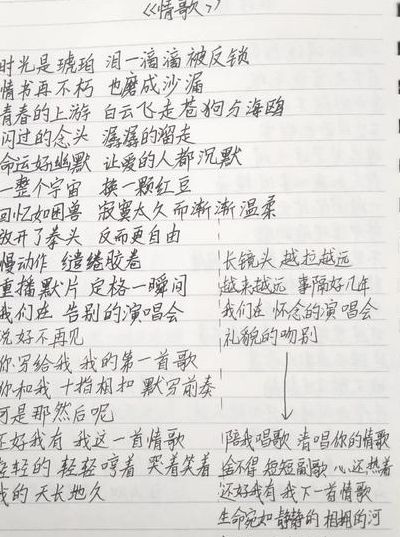 《情歌》
时光是琥珀 泪一滴滴被反锁
情书再不朽 也磨成沙漏
青春的上游 白云飞走苍狗与海鸥
闪过的念头 潺潺的溜走
命运好幽默 让爱的人都沉默
一整个宇宙 换一颗红豆
回忆如困兽 寂寞太久而渐渐温柔
放开了拳头 反而更自由
慢动作 缱绻胶卷
重播默片 定格一瞬间
我们在 告别的演唱会
说好不再见
你写给我 我的第一首歌
你和我 十指相扣 默写前奏
可是那然后呢
还好我有 我这一首情歌
轻轻的 轻轻哼着 哭着笑着
我的 天长地久
长镜头 越拉越远
越来越远 事隔好几年
我们在 怀念的演唱会
礼貌的吻别
陪我唱歌 清唱你的情歌
舍不得 短短副歌 心还热着
还好我有 我下一首情歌
生命宛如 静静的 相拥的河